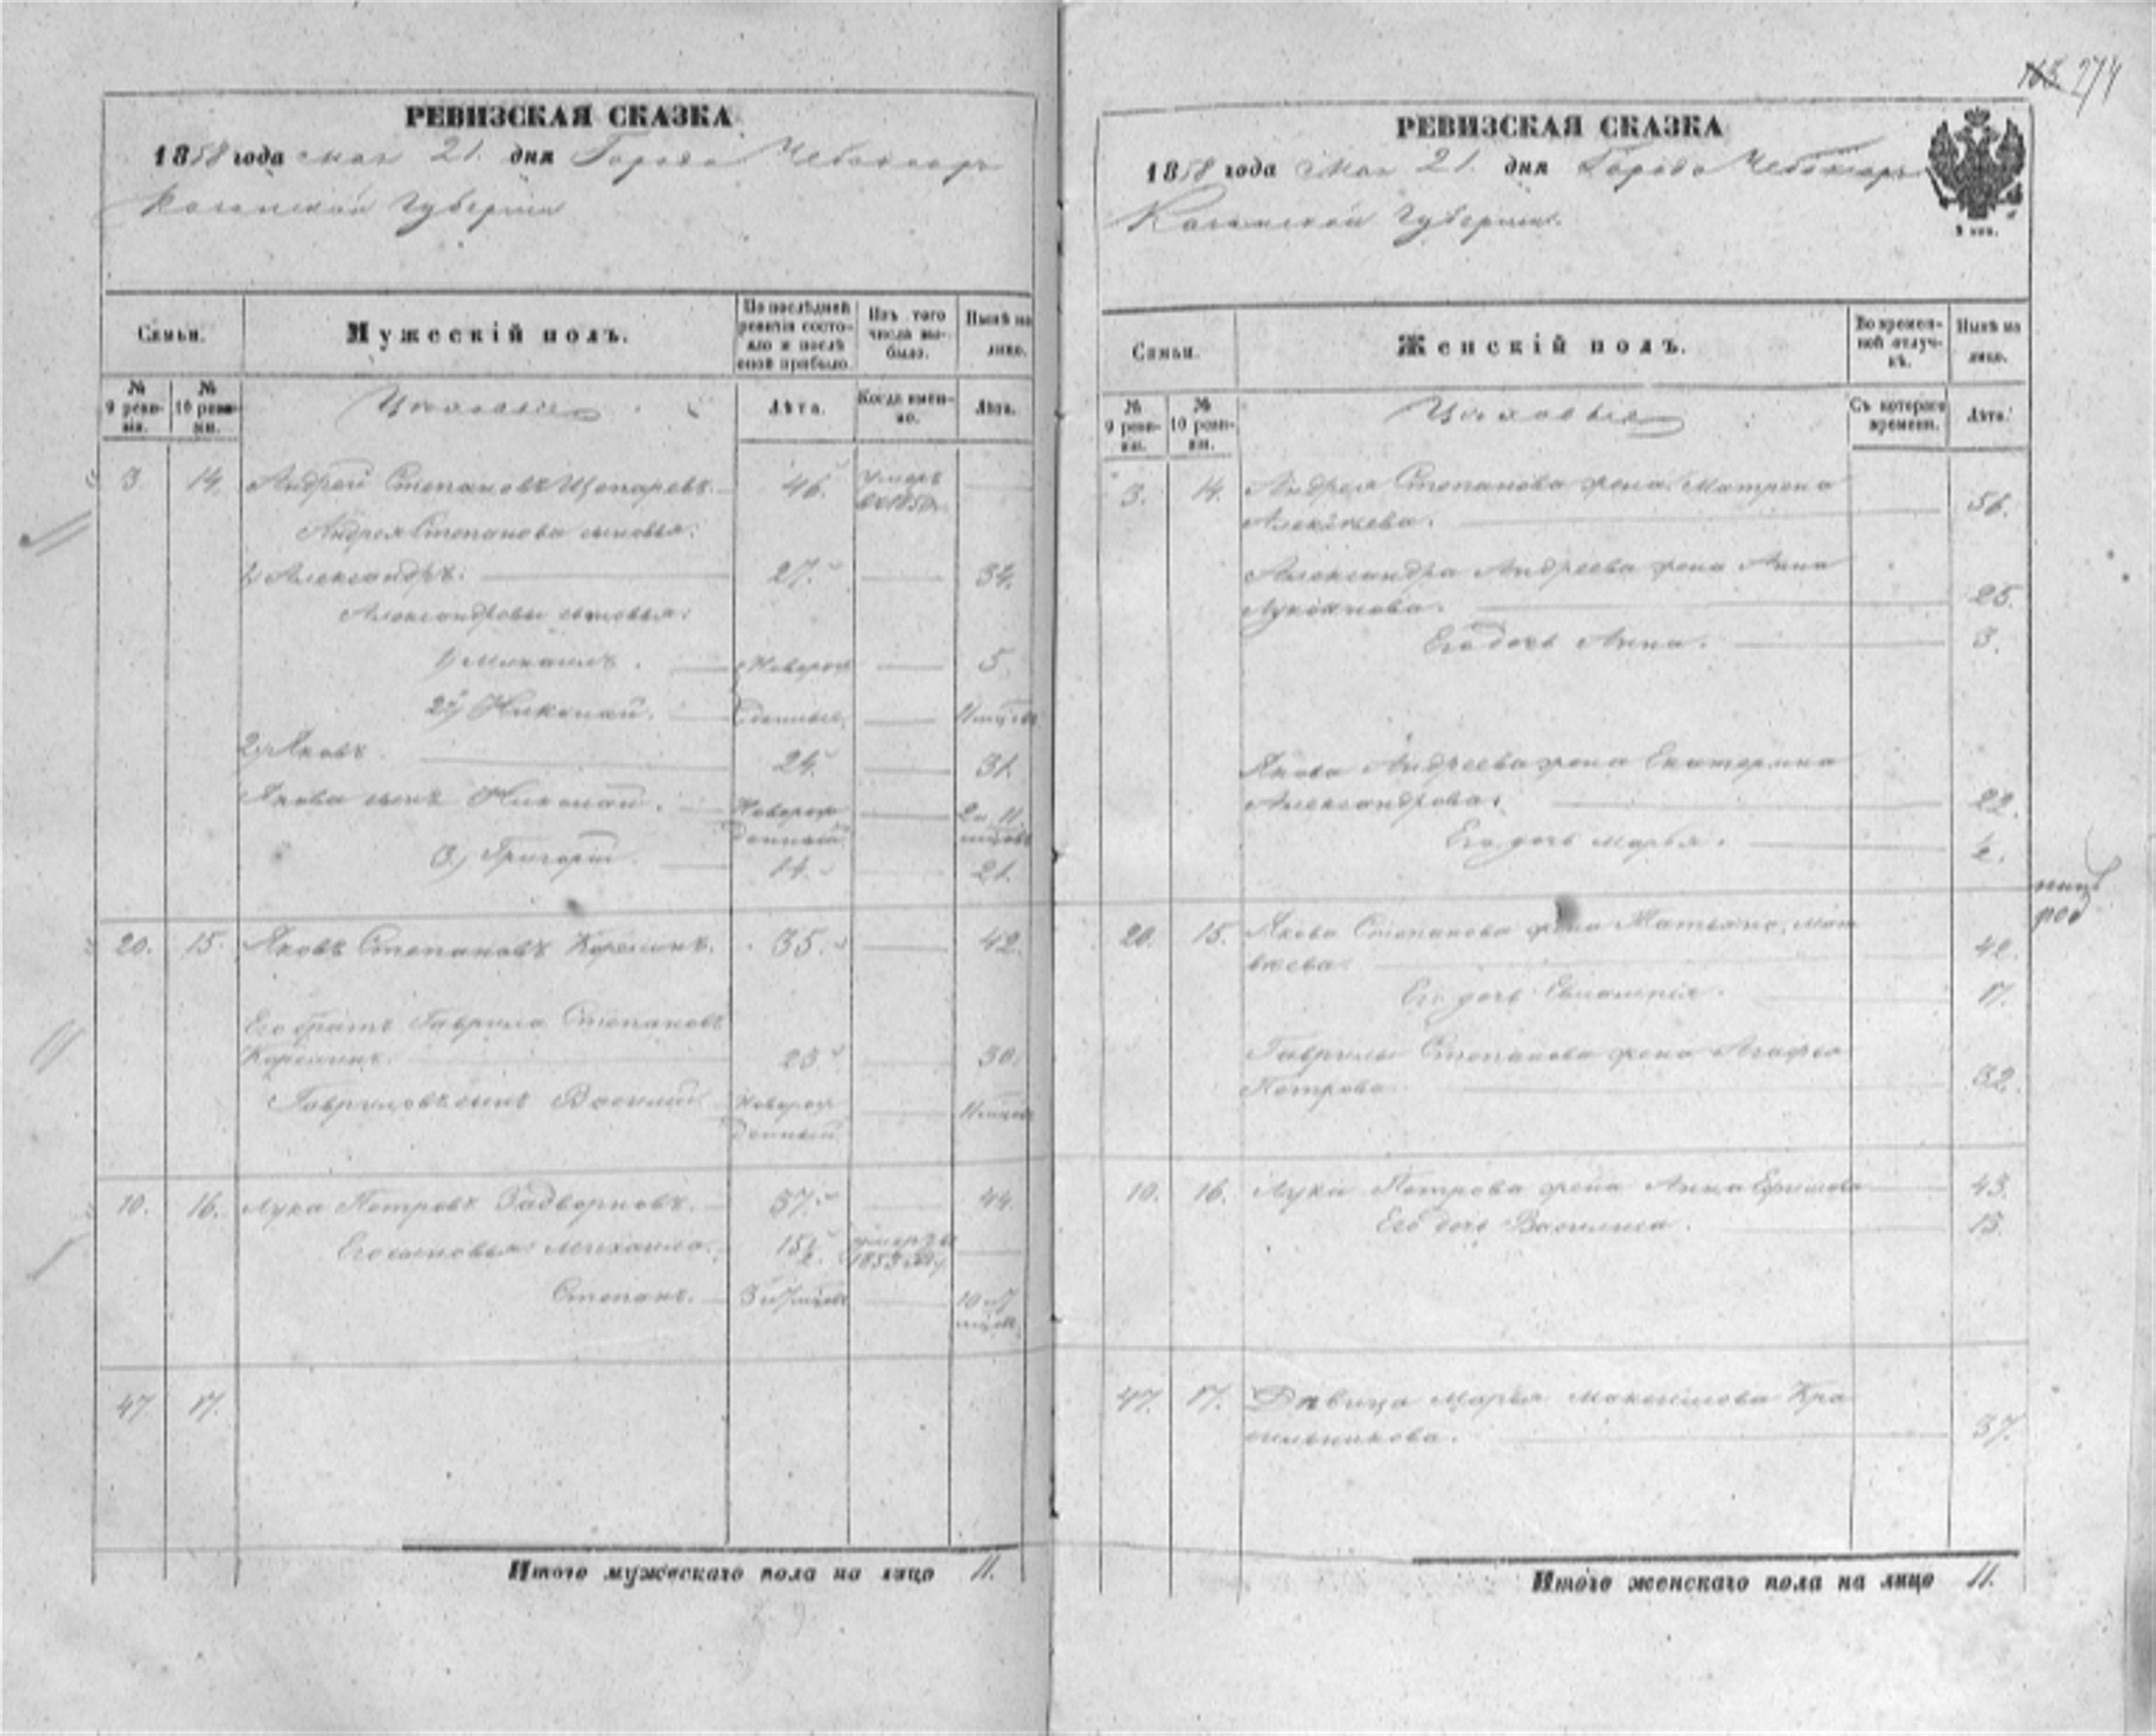 274
РЕВИЗСКАЯ СКАЗКА
1858 года мая 21. дня Города Чебоксар
Казанской Губернии
Семьи.
Мужескій полъ.
По послѣдней ревизіи состояло и послѣ оной прибыло.
Изъ того числа выбыло.
Нынѣ на лицо.
№ 9 ревизіи.
№ 10 ревизіи.
Цеховые
Лѣта.
Когда именно.
Лѣта.
3. 14. Андрей Степановъ 46. умеръ
въ 1850г.
Андрея Степанова сыновья:
1, Александръ. 27. 34.
Александровы сыновья:
1, Михаилъ. Новорож 5.
2, Николай. денные,
2, Яковъ. 24. 31.
Якова сынъ Николай. Новорож 2 и 11.
денный мцовъ
3, Григорій. 14. 21.
20. 15. Яковъ Степановъ 35. 42.
Его братъ Гаврила Степановъ
23 30.
Гавриловъ сынъ Василій Новорож
денный
10. 16. Лука Петровъ Задворновъ. 37. 44.
Его сыновья: Михаила. 15½ умеръ въ
1853 году
Степанъ. 3 и 7 мцовъ 10 и 7
мцовъ.
47 17.
Итого мужескаго пола на лицо 11.
РЕВИЗСКАЯ СКАЗКА
1858 года Мая 21. дня Города Чебоксаръ
Казанской Губернии.
Семьи.
Женскій полъ.
Во временной отлучкѣ.
Нынѣ на лицо.
№ 9 ревизіи.
№ 10 ревизіи.
Цеховые
Съ котораго времени.
Лѣта.
3. 14. Андрея Степанова жена Матрена
Алексѣева. 56.
Александра Андреева жена Анна
25.
Его дочь Анна. 3.
Якова Андреева жена Екатерина
Александрова. 22.
Его дочь Марья. ½.
20. 15. Якова Степанова жена Татьяна Мат
вѣева 42.
Его дочь 17.
Гаврилы Степанова жена Агафья
Петрова 32.
10. 16. Луки Петрова жена Анна Ефимова 43.
Его дочь Василиса. 15.
47. 17. Дѣвица Марья Максимова Кра
сильникова. 37.
Итого женскаго пола на лицо 11.